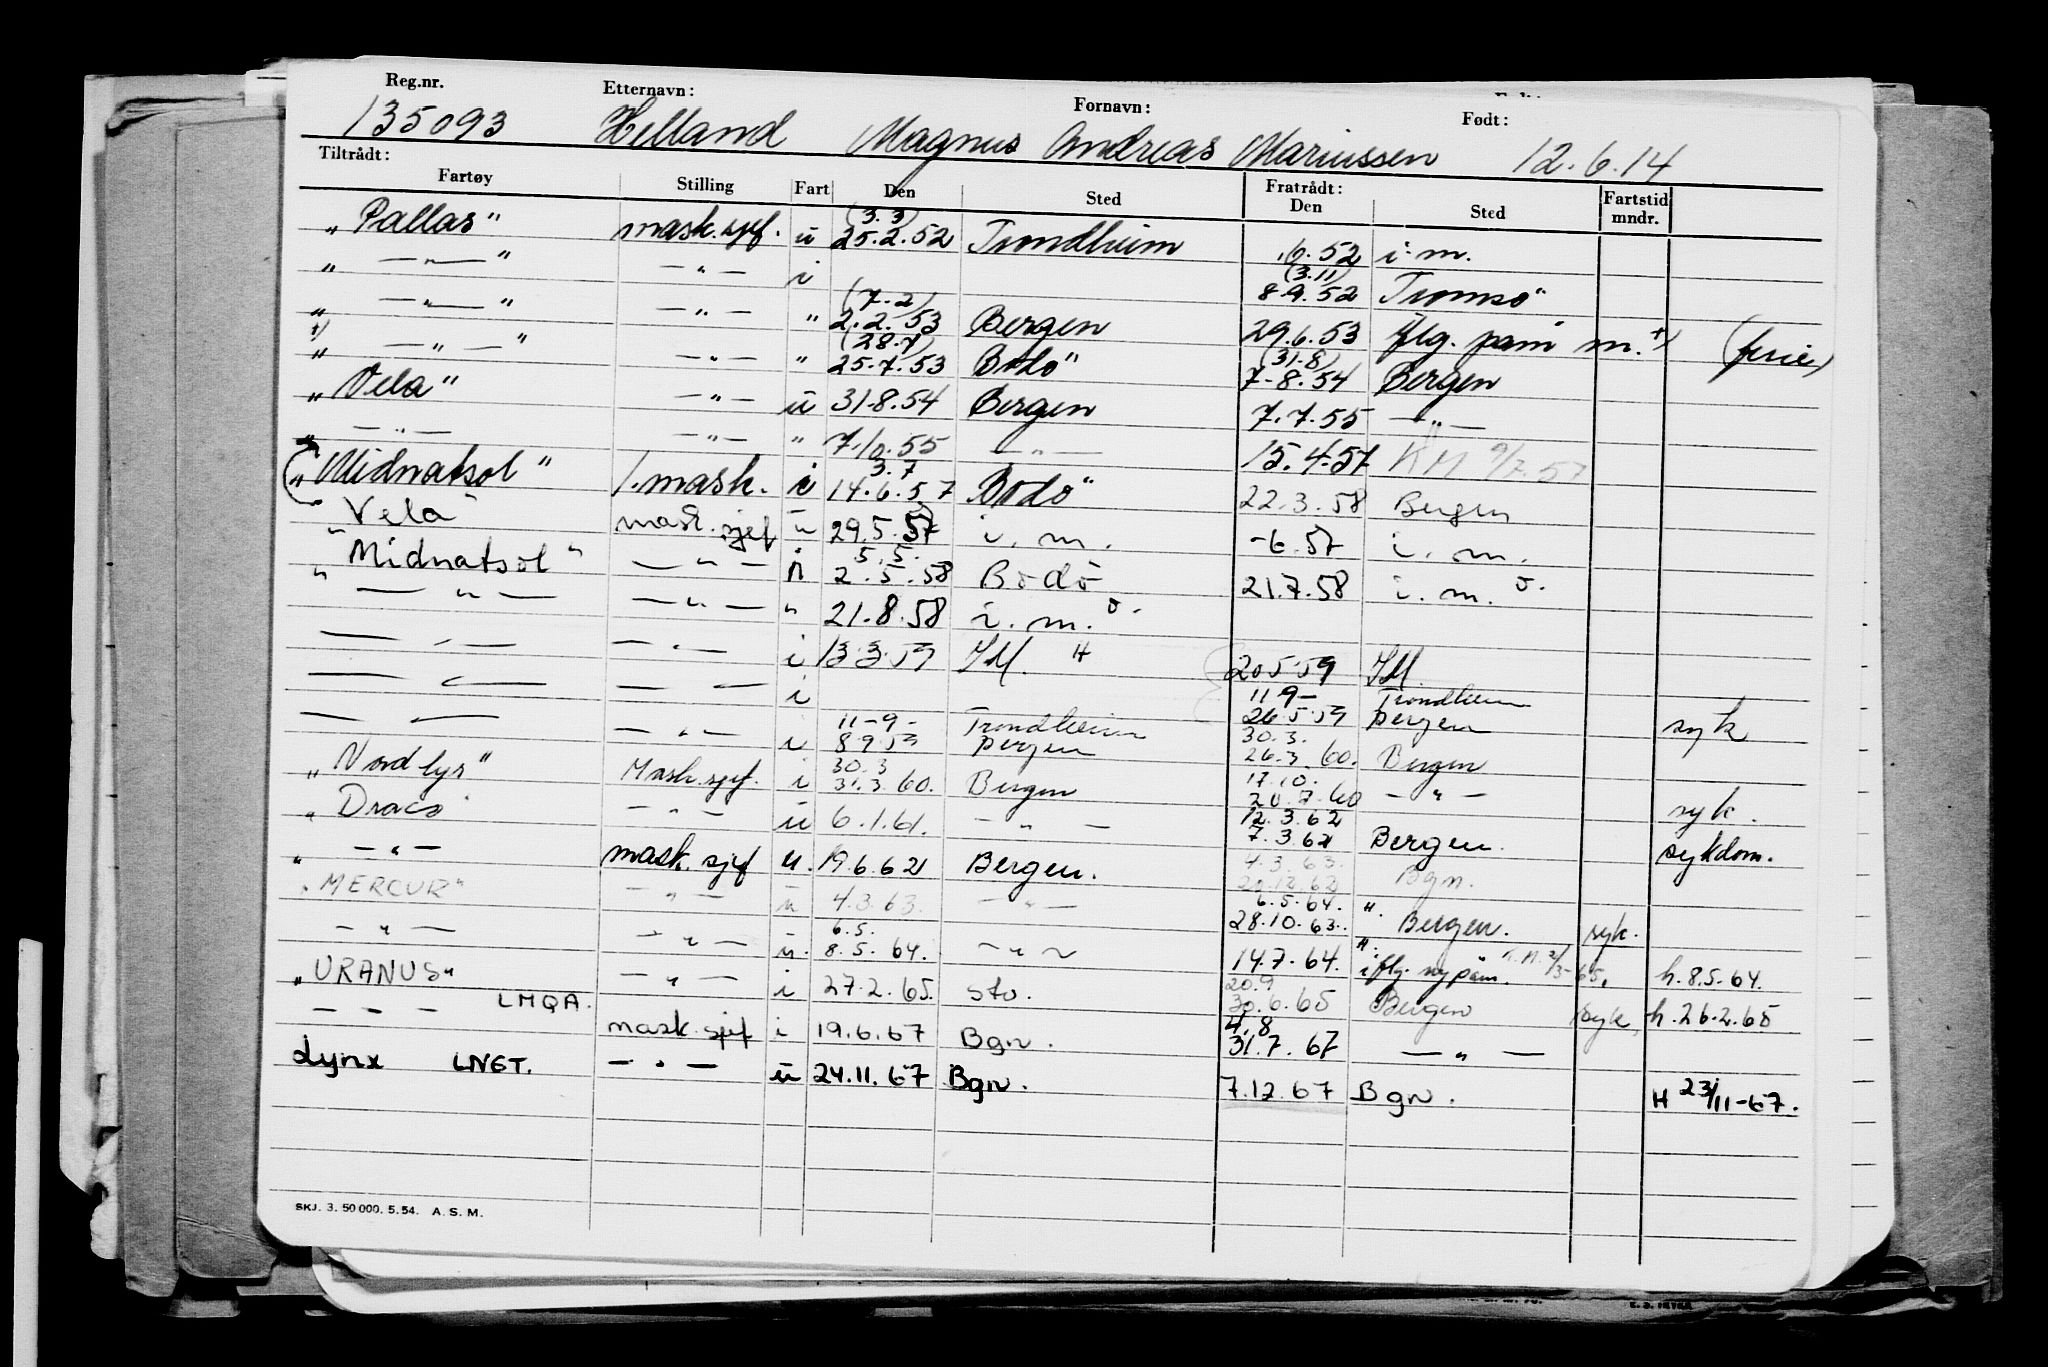 Reg.nr. Etternavn: Fornavn: Født:
135093 Helland Magnus Andreas Mariussen 12.6.14
Tiltrådt: Fratrådt:
Fartøy Stilling Fart Den Sted Den Sted Fartstid mndr.
(3.3)
„Pallas" mask.sjef. ū 25.2.52 Trondheim .6.52 i.m.
(3.11)
„ —„— " —„— i 8.9.52 Tromsø"
(7.2)
„ —„— " —„— " 2.2.53 Bergen 29.6.53 flg. påm m. +) (ferie)
(28.7) (31.8)
+) „ —„— " —„— " 25.7.53 Bodö" 7.8.54 Bergen
„Vela" —„— ū 31.8.54 Bergen 7.7.55 —„—
„ —„— —„— " 7.10.55 —„— 15.4.57 KM 9/7.57
3.7
„Midnatsol" 1.mask. i 14.6.57 Bodö" 22.3.58 Bergen
„Vela" mask.sjef ū 29.5.57 i.m. -6.57 i.m.
5.5.
„Midnatsol" —„— i 2.5.58 Bodö 21.7.58 i.m. o.
—„— —„— " 21.8.58 i.m. o.
—„— —„— i 13.3.59 IM. H 20.5.59 IM.
11-9- Trondheim
—„— —„— i 26.5.59 Bergen syk
11-9- Trondheim 30.3.
—„— —„— i 8.9.59 Bergen 26.3.60. Bergen
30.3 17.10.
„Nordlys" Mask.sjef. i 31.3.60. Bergen 20.7.60 —„— syk.
12.3.62
„Draco" —„— ū 6.1.61. —„— 7.3.62 Bergen. sykdom.
4.3.63.
„ —„— mask.sjef u. 19.6.62 Bergen. 20.12.62 Bgn.
6.5.64. H.
„MERCUR" —„— ū 4.3.63. —„— 28.10.63. Bergen. syk.
6.5. H.
—„— —„— ū. 8.5.64. —„— 14.7.64. iflg. ny påm. 2/3-65. h.8.5.64.
20.9
„URANUS" —„— i 27.2.65. Sto. 30.6.65 Bergen syk. h.26.2.65
LMQA. 4.8
— — — mask.sjef i 19.6.67 Bgn. 31.7.67 —„—
Lynx LNGT. —„— ū 24.11.67 Bgn. 7.12.67 Bgn. H 23/11-67.
SKJ. 3. 50 000. 5. 54. A. S. M.